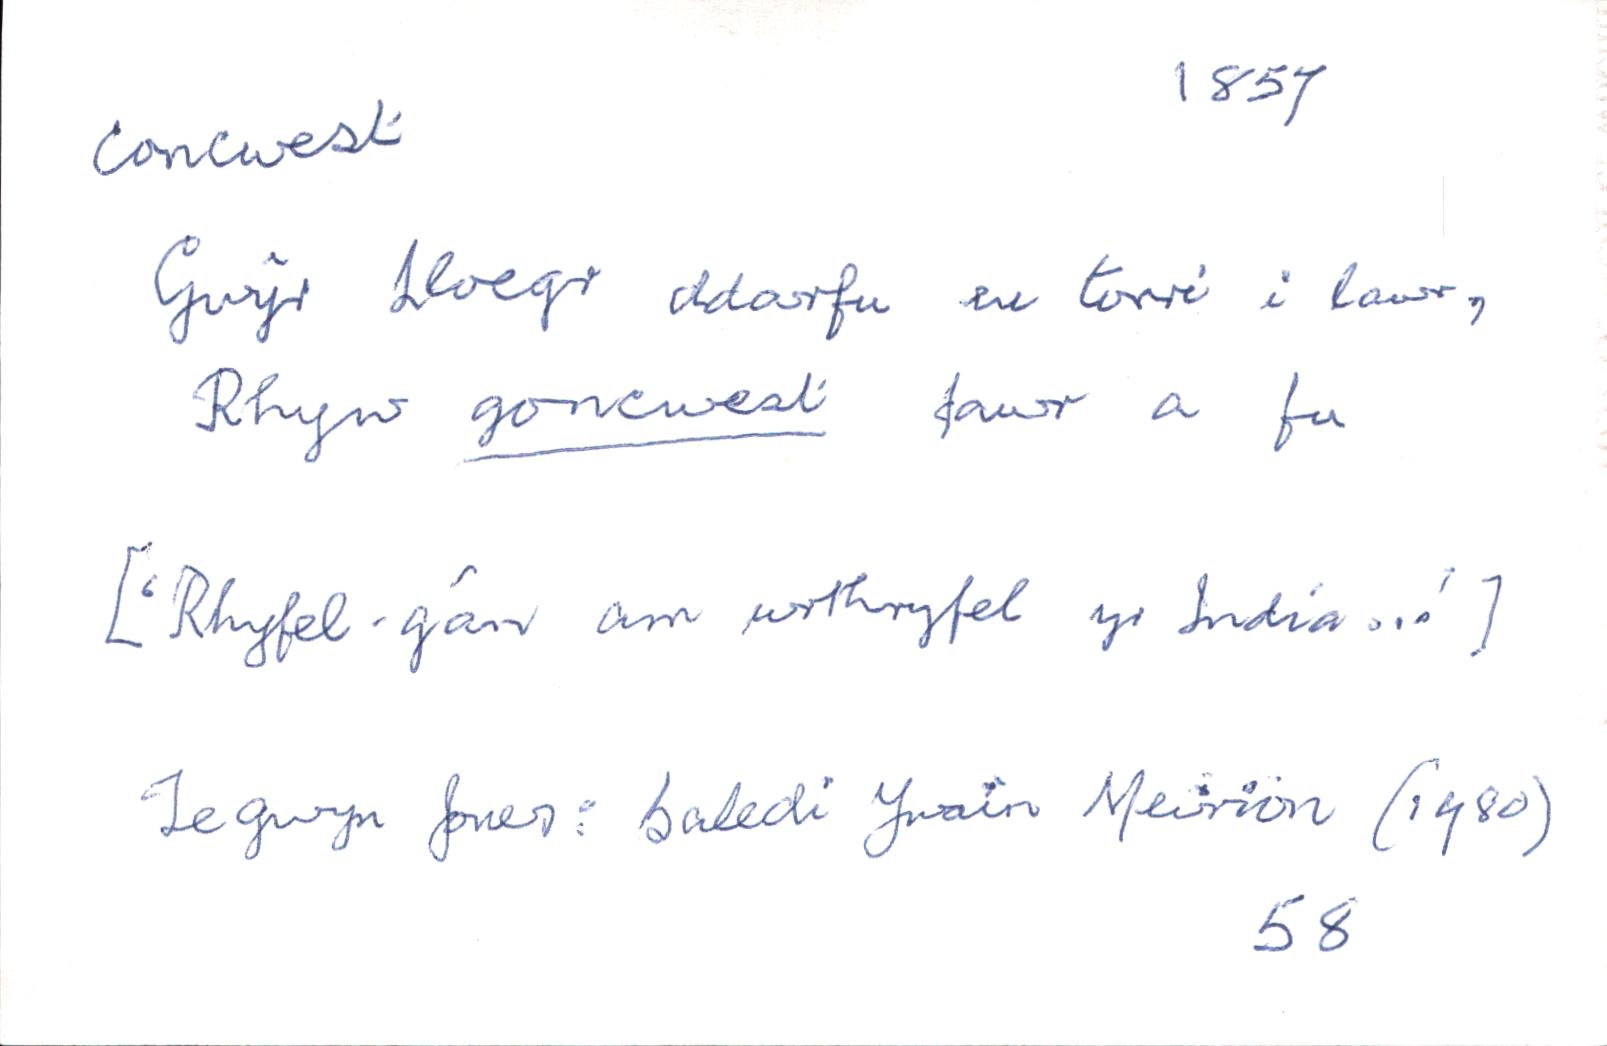 1857
concwest
Gwŷr Lloegr ddarfu eu torri i lawr,
Rhyw goncwest fawr a fu
['Rhyfel-gân am wrthryfel yr India...']
Tegwyn Jones: Baledi Ywain Meirion (1980)
58